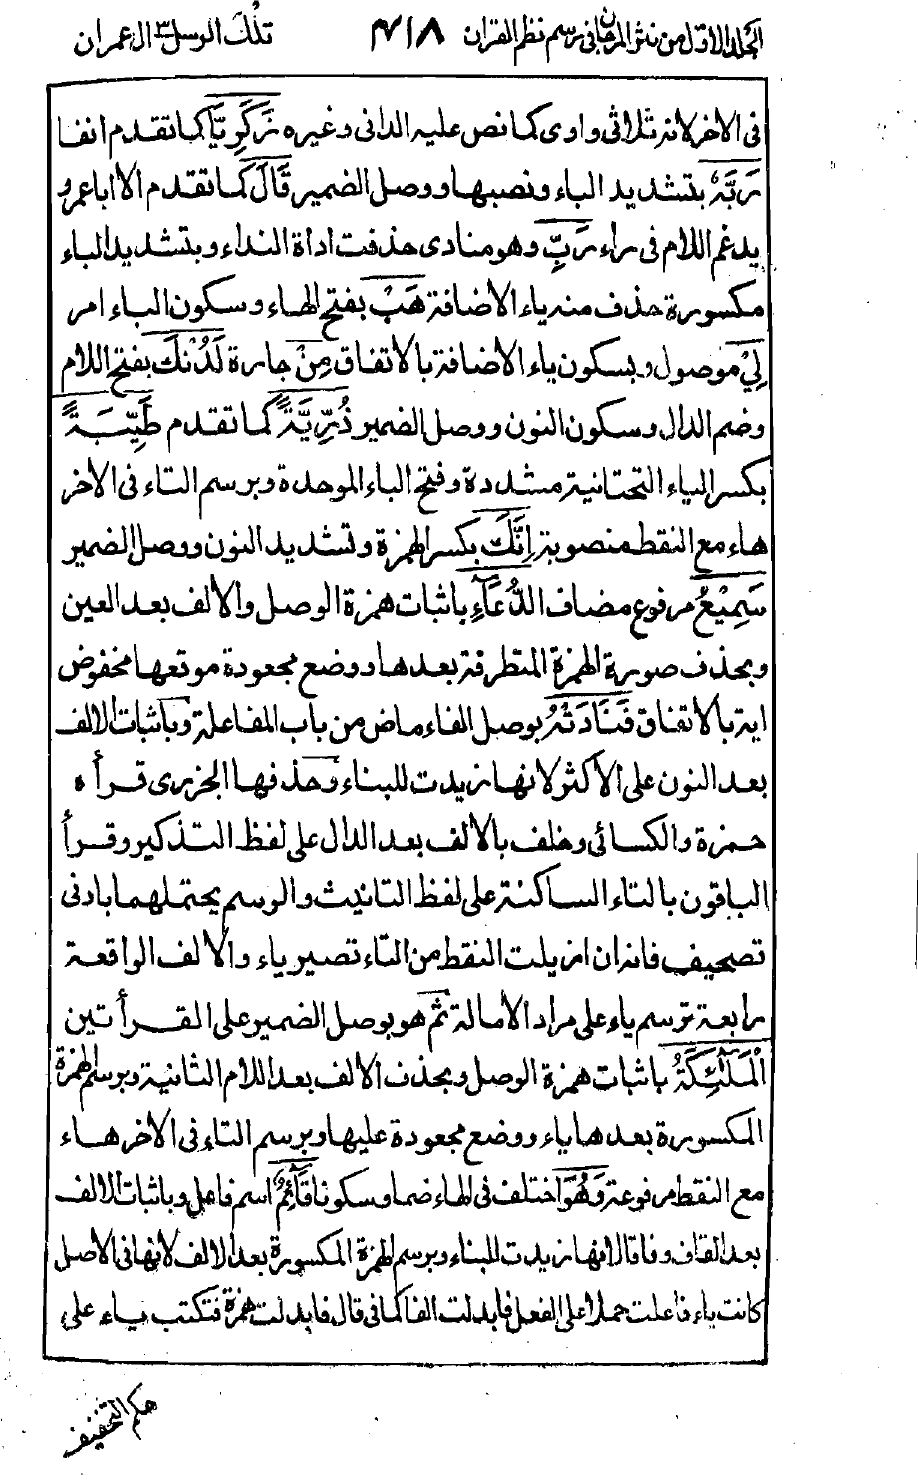 الجلد الاول من نثر المرجان فی رسم نظم القران ۴۱۸ تلك الرسل ۳ ال عمران
فی الاخر لانه ثلاثی واوی كما نص عليه الدانی وغيره زَكَرِيَّا كما تقدم انفا
رَبَّهُ بتشديد الباء ونصبها ووصل الضمير قَالَ كما تقدم الا ابا عمرو
يدغم اللام فی راء رَبِّ وهو منادى حذفت اداة النداء وبتشديد الباء
مكسورة حذف منه ياء الاضافة هَبْ بفتح الهاء وسكون الباء امر
لِيْ موصول وبسكون ياء الاضافة بالاتفاق مِنْ جارة لَدُنْكَ بفتح اللام
وضم الدال وسكون النون ووصل الضمير ذُرِّيَّةً كما تقدم طَيِّبَةً
بكسر الياء التحتانية مشددة وفتح الباء الموحدة وبرسم التاء فی الاخر
هاء مع النقط منصوبة اِنَّكَ بكسر الهمزة وتشديد النون ووصل الضمير
سَمِيْعُ مرفوع مضاف الدُّعَآءِ باثبات همزة الوصل والالف بعد العين
وبحذف صورة الهمزة المتطرفة بعدها ووضع مجعودة موقعها مخفوض
اية بالاتفاق فَنَادَتْهُ بوصل الفاء ماض من باب المفاعلة وباثبات الالف
بعد النون على الاكثر لانها زيدت للبناء وحذفها الجزری قرأه
حمزة والكسائی وخلف بالالف بعد الدال على لفظ التذكير وقرأ
الباقون بالتاء الساكنة على لفظ التانيث والرسم يحتملهما بادنى
تصحيف فانه ان ازيلت النقط من التاء تصير ياء والالف الواقعة
رابعة ترسم ياء على مراد الامالة ثم هو بوصل الضمير على القرأتين
الْمَلٰٓئِكَةُ باثبات همزة الوصل وبحذف الالف بعد اللام الثانية وبرسم الهمزة
المكسورة بعدها ياء ووضع مجعودة عليها وبرسم التاء فی الاخر هاء
مع النقط مرفوعة وَهُوَ اختلف فی الهاء ضما وسكونا قَآئِمٌ اسم فاعل وباثبات الالف
بعد القاف وفاقا لانها زيدت للبناء وبرسم الهمزة المكسورة بعد الالف لانها فی الاصل
كانت ياء فاعلت حملا على الفعل فابدلت الفا كما فی قال فابدلت همزة فتكتب ياء على
حكم التخفيف